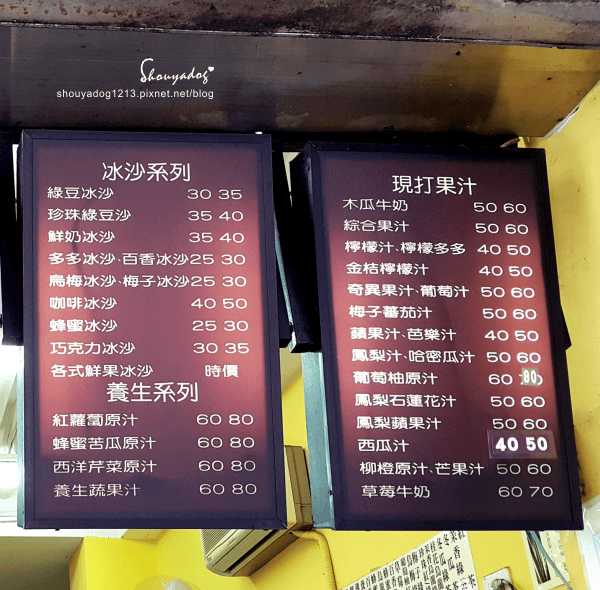 Shouyadog
shouyadog1213.pixnet.net/blog
冰沙系列
綠豆冰沙 30 35
珍珠綠豆沙 35 40
鮮奶冰沙 35 40
多多冰沙、百香冰沙 25 30
烏梅冰沙、梅子冰沙 25 30
咖啡冰沙 40 50
蜂蜜冰沙 25 30
巧克力冰沙 30 35
各式鮮果冰沙 時價
養生系列
紅蘿蔔原汁 60 80
蜂蜜苦瓜原汁 60 80
西洋芹菜原汁 60 80
養生蔬果汁 60 80
現打果汁
木瓜牛奶 50 60
綜合果汁 50 60
檸檬汁、檸檬多多 40 50
金桔檸檬汁 40 50
奇異果汁、葡萄汁 50 60
梅子蕃茄汁 50 60
蘋果汁、芭樂汁 40 50
鳳梨汁、哈密瓜汁 50 60
葡萄柚原汁 60 80
鳳梨石蓮花汁 50 60
鳳梨蘋果汁 50 60
西瓜汁 40 50
柳橙原汁、芒果汁 50 60
草莓牛奶 60 70